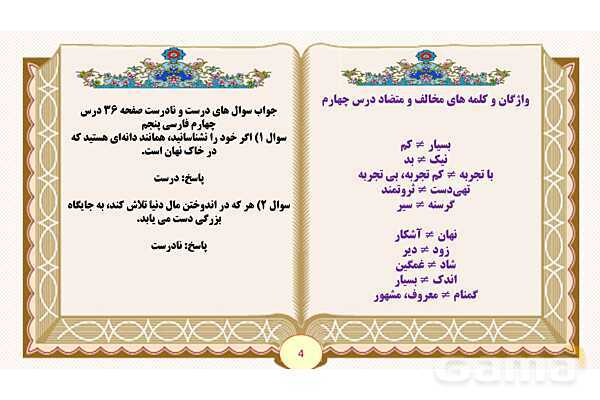 واژگان و کلمه های مخالف و متضاد درس چهارم
بسیار ≠ کم
نیک ≠ بد
با تجربه ≠ کم تجربه، بی تجربه
تهی‌دست ≠ ثروتمند
گرسنه ≠ سیر
نهان ≠ آشکار
زود ≠ دیر
شاد ≠ غمگین
اندک ≠ بسیار
گمنام ≠ معروف، مشهور
جواب سوال های درست و نادرست صفحه ۳۶ درس
چهارم فارسی پنجم
سوال ۱) اگر خود را نشناسانید، همانند دانه‌ای هستید که
در خاک نهان است.
پاسخ: درست
سوال ۲) هر که در اندوختن مال دنیا تلاش کند، به جایگاه
بزرگی دست می یابد.
پاسخ: نادرست
4
Gama